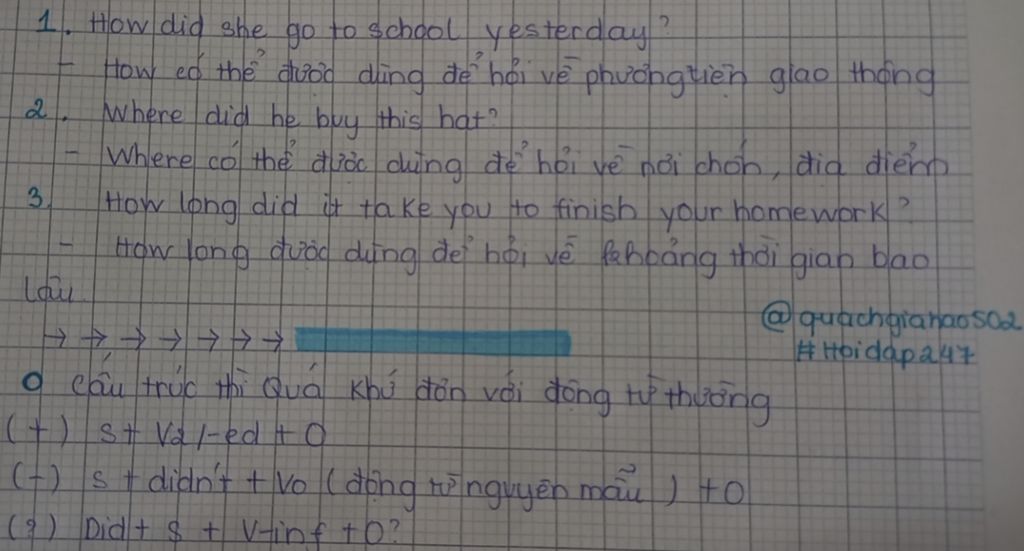 1. How did she go to school yesterday?
- How có thể được dùng để hỏi về phương tiện giao thông
2. Where did he buy this hat?
- Where có thể được dùng để hỏi về nơi chốn, địa điểm
3. How long did it take you to finish your homework?
- How long được dùng để hỏi về khoảng thời gian bao
lâu
@quachgiahao502
→ → → → → → →
#Hoidap247
o Cấu trúc thì Quá khứ đơn với động từ thường
(+) S + V2/-ed + O
(-) S + didn't + Vo (động từ nguyên mẫu) + O
(?) Did + S + V-inf + O?